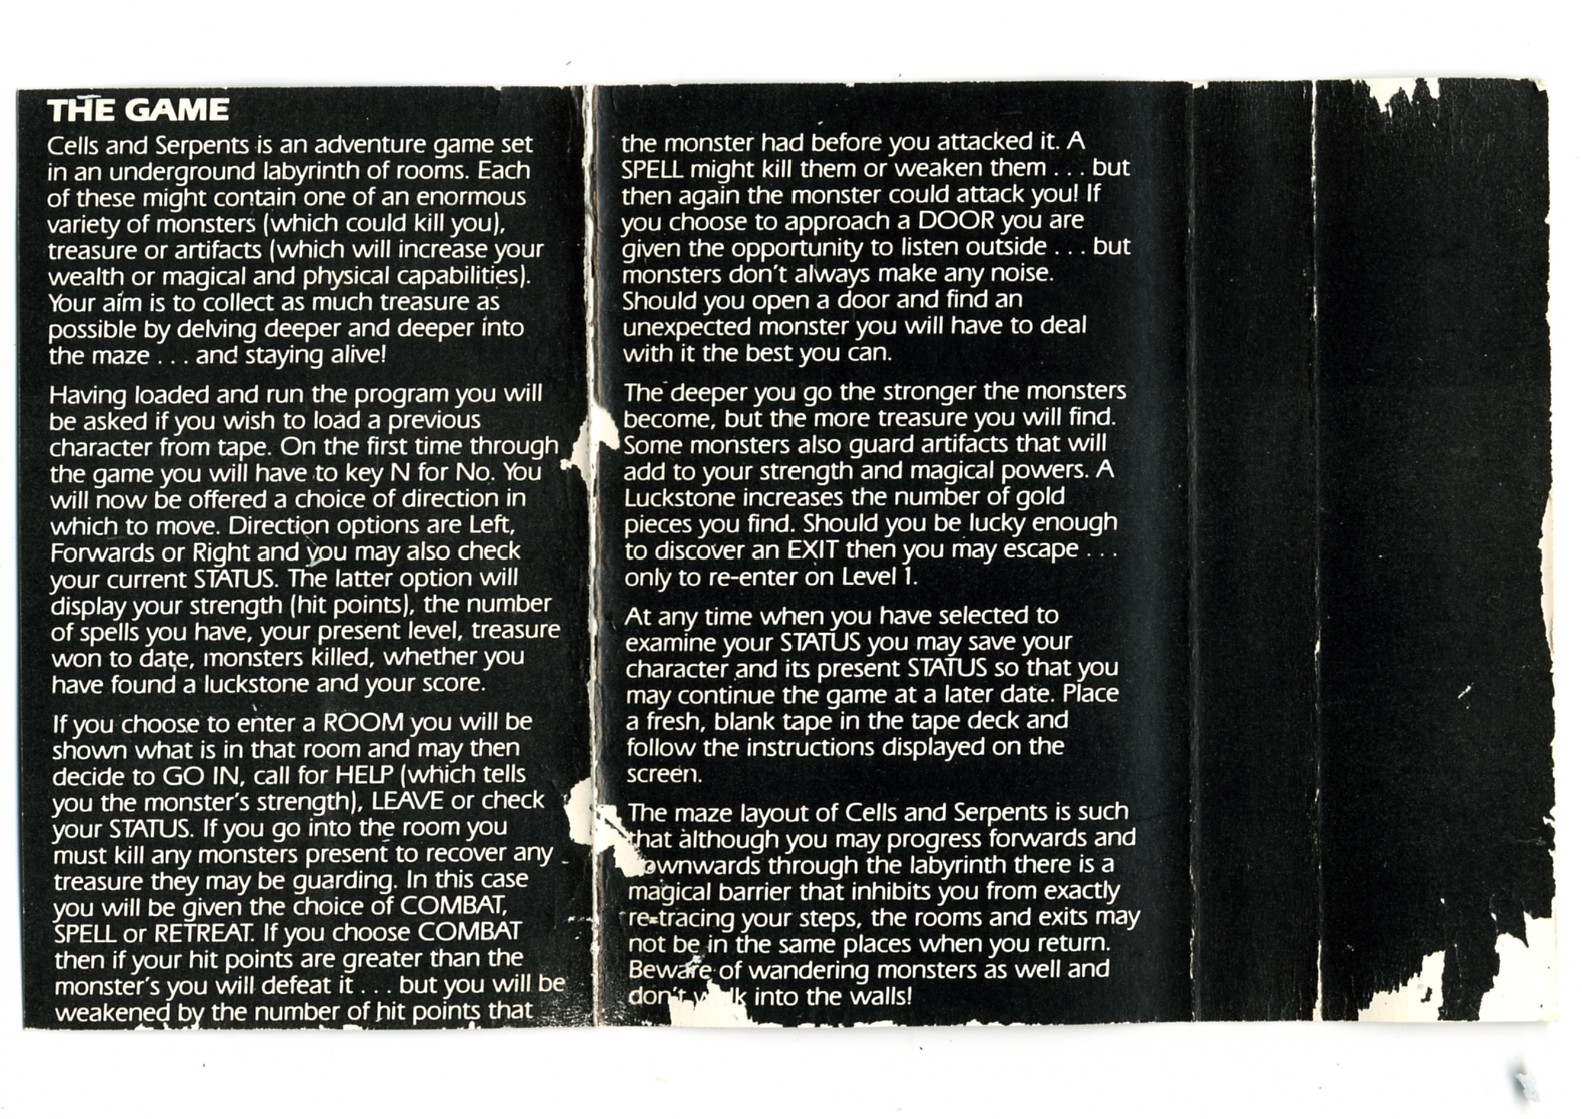 THE GAME
Cells and Serpents is an adventure game set
in an underground labyrinth of rooms. Each
of these might contain one of an enormous
variety of monsters (which could kill you),
treasure or artifacts (which will increase your
wealth or magical and physical capabilities).
Your aim is to collect as much treasure as
possible by delving deeper and deeper into
the maze . . . and staying alive!
Having loaded and run the program you will
be asked if you wish to load a previous
character from tape. On the first time through
the game you will have to key N for No. You
will now be offered a choice of direction in
which to move. Direction options are Left,
Forwards or Right and you may also check
your current STATUS. The latter option will
display your strength (hit points), the number
of spells you have, your present level, treasure
won to date, monsters killed, whether you
have found a luckstone and your score.
If you choose to enter a ROOM you will be
shown what is in that room and may then
decide to GO IN, call for HELP (which tells
you the monster's strength), LEAVE or check
your STATUS. If you go into the room you
must kill any monsters present to recover any
treasure they may be guarding. In this case
you will be given the choice of COMBAT,
SPELL or RETREAT. If you choose COMBAT
then if your hit points are greater than the
monster's you will defeat it . . . but you will be
weakened by the number of hit points that
the monster had before you attacked it. A
SPELL might kill them or weaken them . . . but
then again the monster could attack you! If
you choose to approach a DOOR you are
given the opportunity to listen outside . . . but
monsters don't always make any noise.
Should you open a door and find an
unexpected monster you will have to deal
with it the best you can.
The deeper you go the stronger the monsters
become, but the more treasure you will find.
Some monsters also guard artifacts that will
add to your strength and magical powers. A
Luckstone increases the number of gold
pieces you find. Should you be lucky enough
to discover an EXIT then you may escape . . .
only to re-enter on Level 1.
At any time when you have selected to
examine your STATUS you may save your
character and its present STATUS so that you
may continue the game at a later date. Place
a fresh, blank tape in the tape deck and
follow the instructions displayed on the
screen.
The maze layout of Cells and Serpents is such
that although you may progress forwards and
downwards through the labyrinth there is a
magical barrier that inhibits you from exactly
re-tracing your steps, the rooms and exits may
not be in the same places when you return.
Beware of wandering monsters as well and
don't walk into the walls!